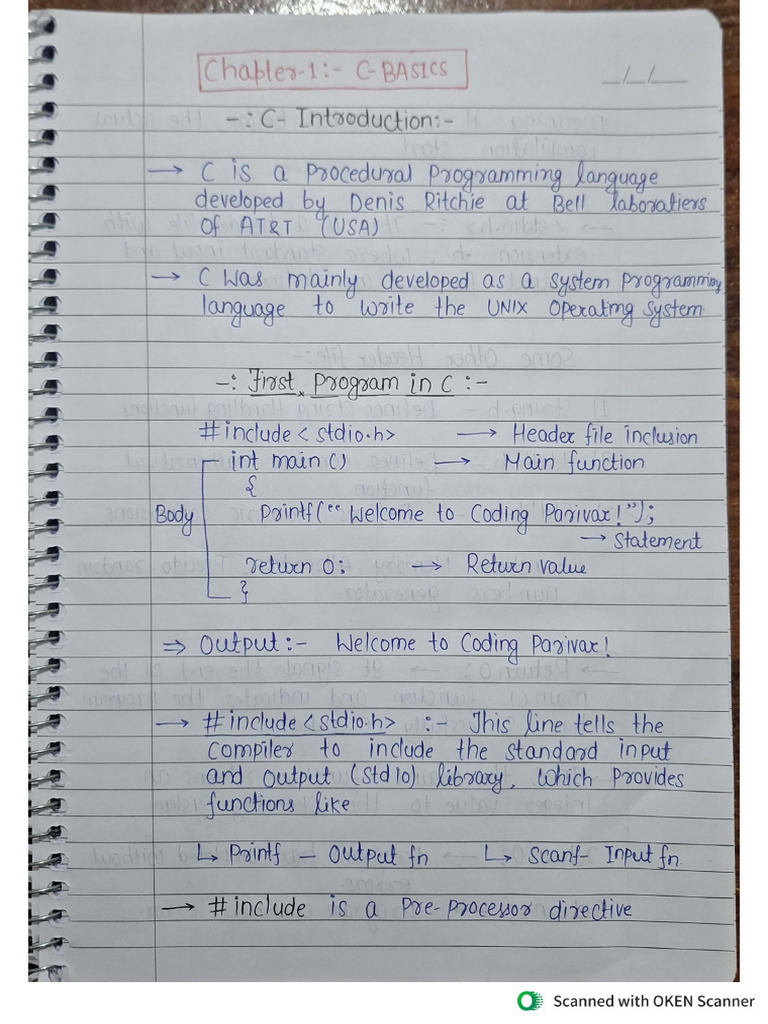 Chapter-1:- C-BASICS
_/_/_
-: C- Introduction:-
→ C is a procedural programming language
developed by Denis Ritchie at Bell laboratiers
of AT&T (USA)
→ C was mainly developed as a system programming
language to write the UNIX operating system.
-: First Program in C :-
#include < stdio.h> → Header file inclusion
int main () → Main function
{
Body
Printf(“ Welcome to Coding Parivar!”);
→ Statement
return 0; → Return value
}
⇒ Output:- Welcome to Coding Parivar!
→ #include <stdio.h> :- This line tells the
compiler to include the standard input
and output (stdio) library, which provides
functions like
↳ Printf - Output fn ↳ Scanf- Input fn.
→ #include is a Pre-processor directive
Scanned with OKEN Scanner